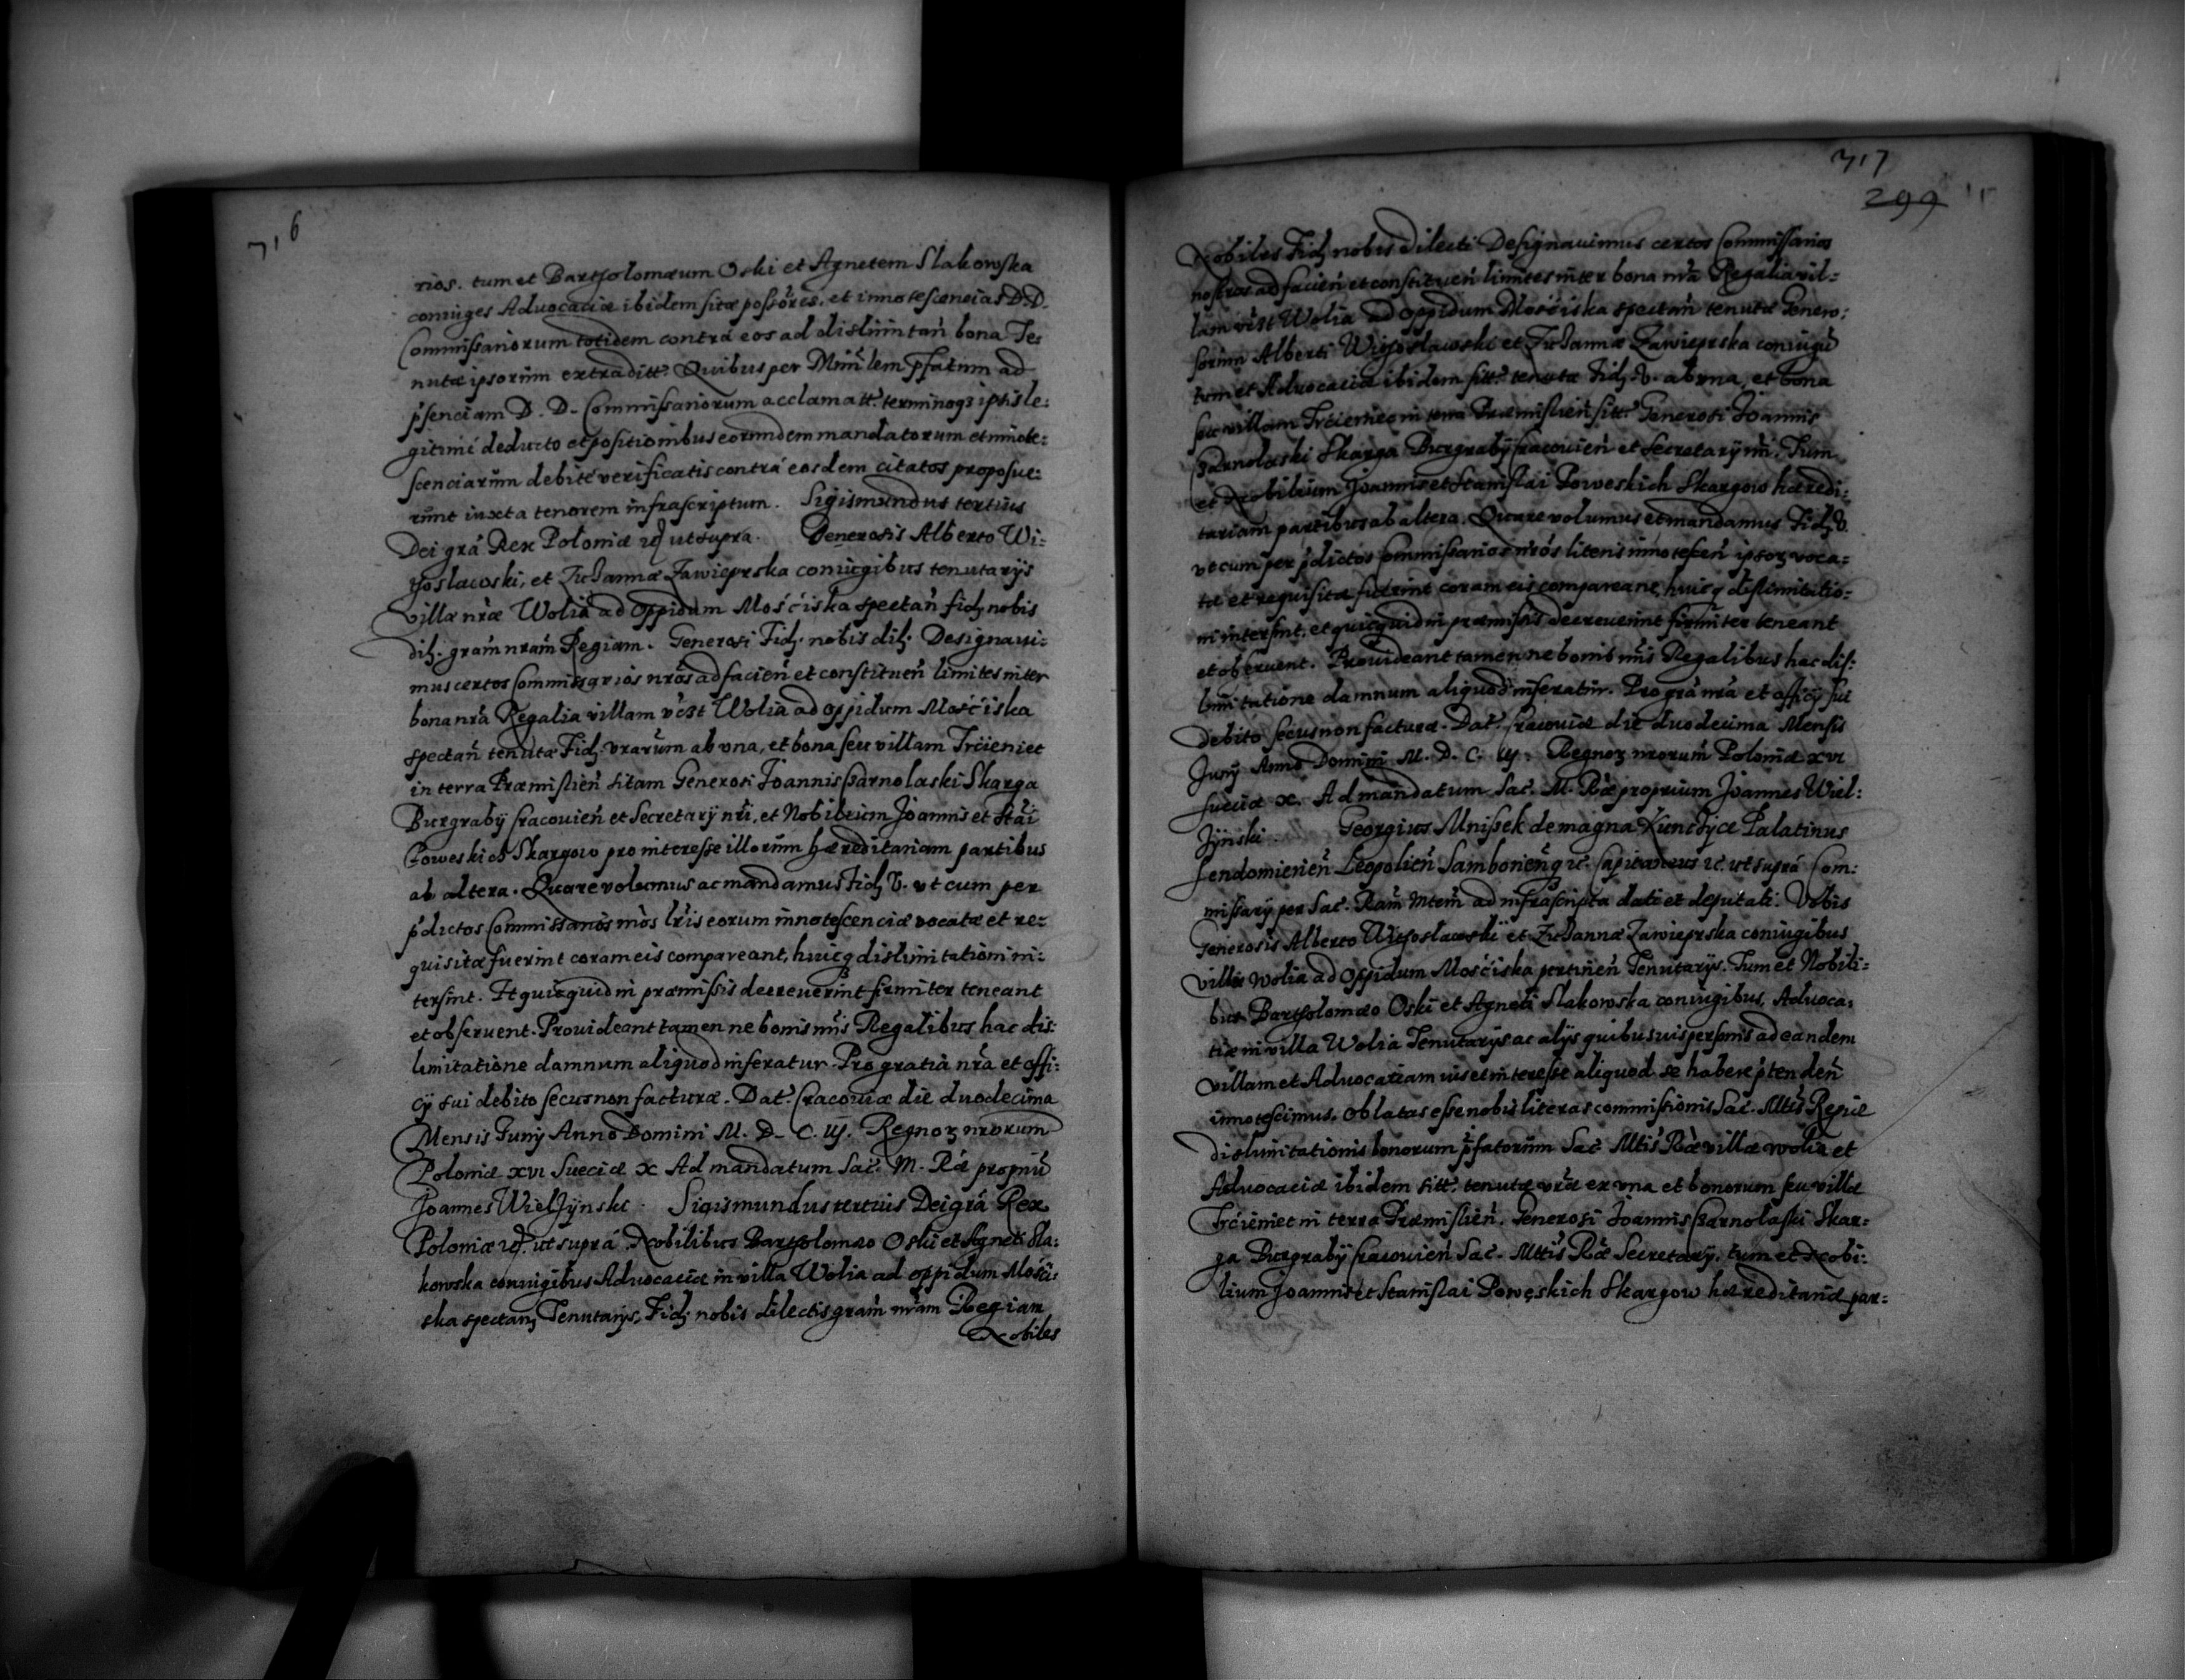 716
rios. tum et Bartholomæum Oski et Agnetem Slakowska
coniuges Aduocaciæ ibidem sitæ possores. et innotescencias D. D.
Commissariorum totidem contra eos ad dislimitan bona Te:
nutæ ipsorum extraditt. Quibus per Minlem pfatum ad
psenciam D. D. Commissariorum acclamatt. terminoq3 ipsis le:
gitimè deducto et positionibus eorundem mandatorum et innote:
scenciarum debitè verificatis contrà eosdem citatos proposue:
runt iuxta tenorem infrascriptum. Sigismundus tertius
Dei grâ Rex Poloniæ ut supra. Generosis Alberto Wi:
yoslawski, et Zuzannæ Zawieprska coniugibus tenutarijs
villæ nræ Wolia ad oppidum Mościska spectan fid nobis
dil. gram nram Regiam. Generosi Fid. nobis dil. Designaui:
mus certos Commissarios nros ad facien et constituen limites inter
bona nra Regalia villam vczt Wolia ad oppidum Mościska
spectan tenutæ Fid vrarum ab vna, et bona seu villam Trcieniec
in terra Præmislien sitam Generosi Joannis Czarnolaski Skarga
Burgrabij Cracouien et Secretarij nri, et Nobilium Joannis et Stai
Poweskich Skargow pro interesse illorum hæreditariam partibus
ab altera. Quare volumus ac mandamus Fid V. vt cum per
pdictos Commissarios nros lris eorum innotescenciæ vocatæ et re:
quisitæ fuerint coram eis compareant, huicq dislimitationi in:
tersint. Et quicquid in præmissis decreuerint firmiter teneant
et obseruent. Prouideant tamen ne bonis nris Regalibus hac dis:
limitatione damnum aliquod inferatur. Pro gratia nra et offi:
cij sui debito secus non facturæ. Dat. Cracouiæ die duodecima
Mensis Junij Anno Domini M. D. C. iij. Regnoz nrorum
Poloniæ xvi Sueciæ x Ad mandatum Sac. M. Ræ propriu
Joannes Wielzijnski. Sigismundus tertius Dei grâ Rex
Poloniæ ut suprá. Nobilibus Bartholomæo Oski et Agneti Sla:
kowska coniugibus Aduocaciæ in villa Wolia ad oppidum Mości:
ska spectan Tenutarijs, Fid nobis dilectis gram nram Regiam
Nobiles
717
299
Nobiles Fid nobis dilecti Designauimus certos Commissarios
nostros ad facien et constituen limites inter bona nra Regalia vil:
lam vczt Wolia ad oppidum Mościska spectan tenutæ Genero:
sorum Alberti Wiyoslawski et Zuzannæ Zawieprska coniugu
tum et Aduocaciæ ibidem sitt. tenutæ Fid. V. ab vna, et bona
seu villam Trcieniec in terra Præmislien sitt. Generosi Joannis
Czarnolaski Skarga Burgrabij Cracouien et Secretarij nri. Tum
et Nobilium Joannis et Stanislai Poweskich Skargow hæredi:
tariam partibus ab altera. Quare volumus et mandamus Fid V.
vt cum per pdictos Commissarios nros literis innotescen ipsoz voca:
tæ et requisitæ fuerint coram eis compareant, huicq dislimitatio:
ni intersint, et quicquid in præmissis decreuerint firmiter teneant
et obseruent. Prouideant tamen ne bonis nris Regalibus hac dis:
limitatione damnum aliquod inferatur. Pro grâ nra et officij sui
debito secus non facturæ. Dat. Cracouiæ die duodecima Mensis
Junij Anno Domini M. D. C. iij. Regnoz nrorum Poloniæ xvi
Sueciæ x. Ad mandatum Sac. M. Ræ proprium Joannes Wiel:
zijnski. Georgius Mniszek de magna Kunczijce Palatinus
Sendomirien Leopolien Samborien Capitaneus ut suprá Com:
missarij per Sac. Ram Mtem ad infrascripta dati et deputati. Vobis
Generosis Alberto Wiyoslawski et Zuzannæ Zawieprska coniugibus
villæ Wolia ad oppidum Mościska pertinen Tenutarijs. Tum et Nobili:
bus Bartholomæo Oski et Agneti Slakowska coniugibus, Aduoca:
tiæ in villa Wolia Tenutarijs ac alijs quibusuis personis ad eandem
villam et Aduocatiam ius et interesse aliquod se habere ptenden
innotescimus. Oblatas esse nobis literas commissionis Sac. Mttis Regiæ
dislimitationis bonorum pfatorum Sac Mttis Ræ villæ Wolia et
Aduocaciæ ibidem sitt. tenutæ vræ ex vna et bonorum seu villæ
Trcieniec in terra Præmislien. Generosi Joannis Czarnolaski Skar:
ga Burgrabij Cracouien Sac. Mttis Ræ Secretarij. tum et Nobi:
lium Joannis et Stanislai Poweskich Skargow hæreditariæ par: